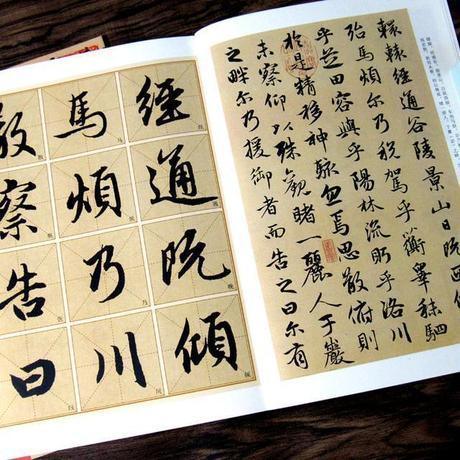 轘轅經通谷陵景山日既西傾
殆馬煩尔乃税駕乎蘅皋秣駟
乎芝田容與乎陽林流眄乎洛川
於是精移神駭忽焉思散俯則
未察仰以殊觀睹一麗人于巖
之畔尔乃援御者而告之曰尔有
經通既傾
馬煩乃川
散察告曰